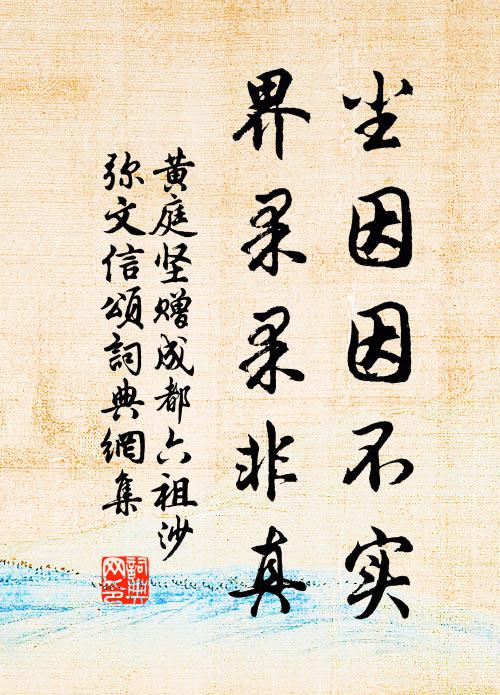 尘因因不实
界果果非真
黄庭坚赠成都六祖沙
弥文信頌詞典網集
詞典网印